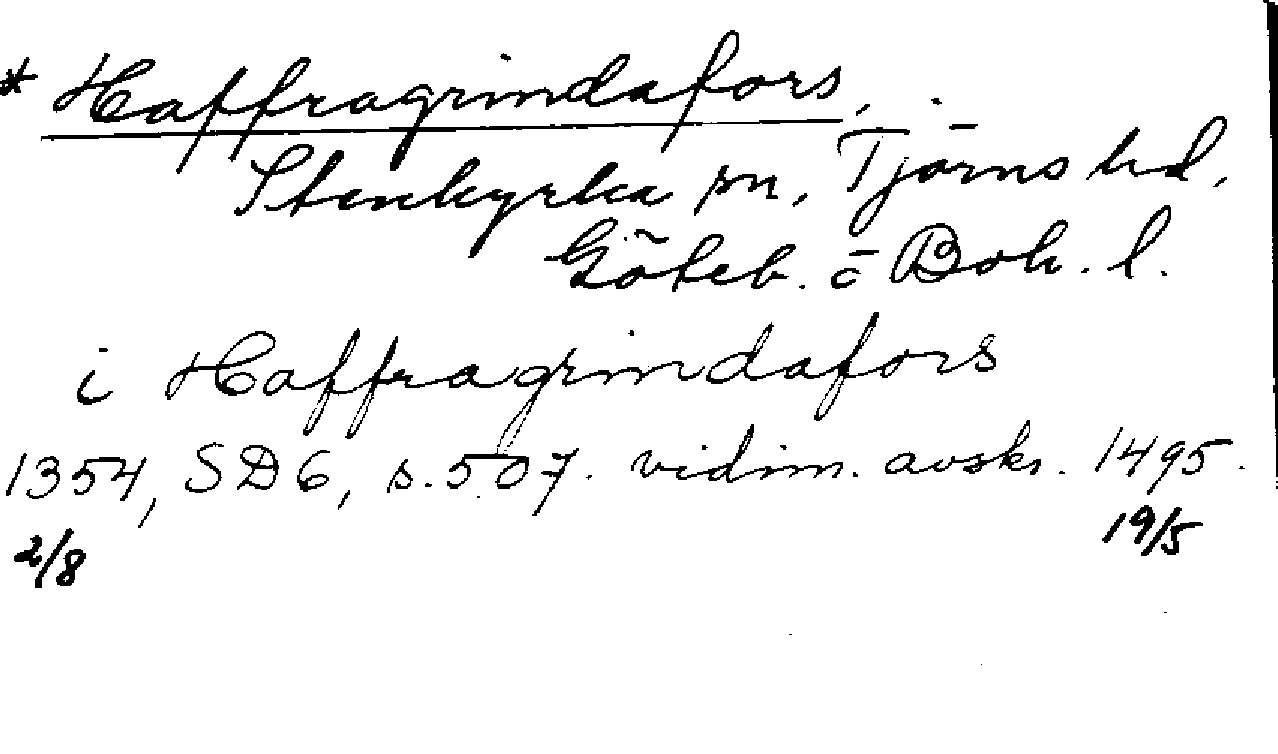 * Haffragrindafors,
Stenkyrka sn, Tjörns hd,
Göteb. o Boh. l.
i Haffragrindafors
1354, SD6, s. 507. vidim. avskr. 1495.
2/8 19/5